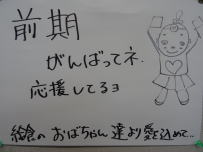 前期
がんばってネ.
応援してるヨ
給食の おばちゃん 達より愛を込めて...